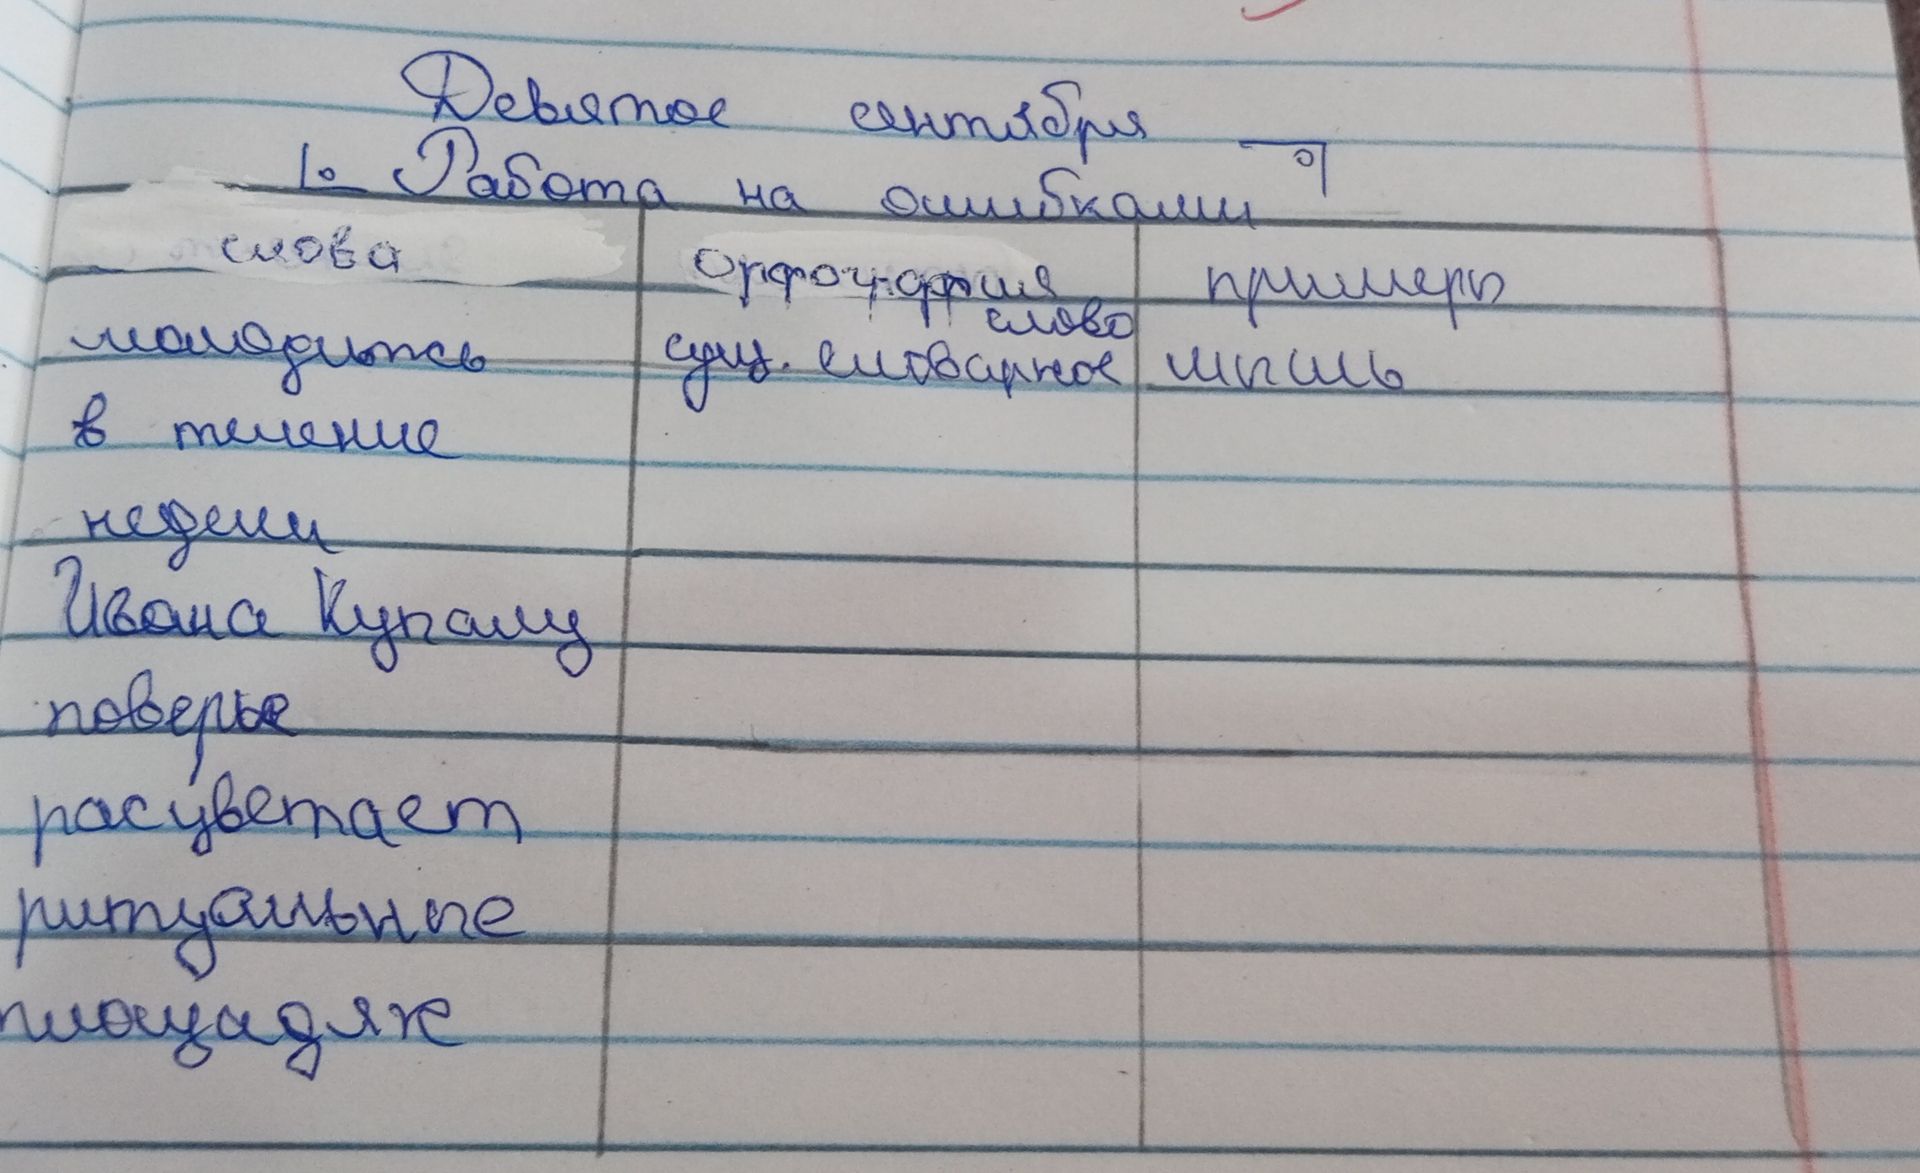 Девятое сентября
1. Работа на ошибками
слова орфография примеры
слово
молодитсь сущ. словарное мышь
в течение
недели
Ивана Купалу
поверье
расцветает
ритуальные
площадях